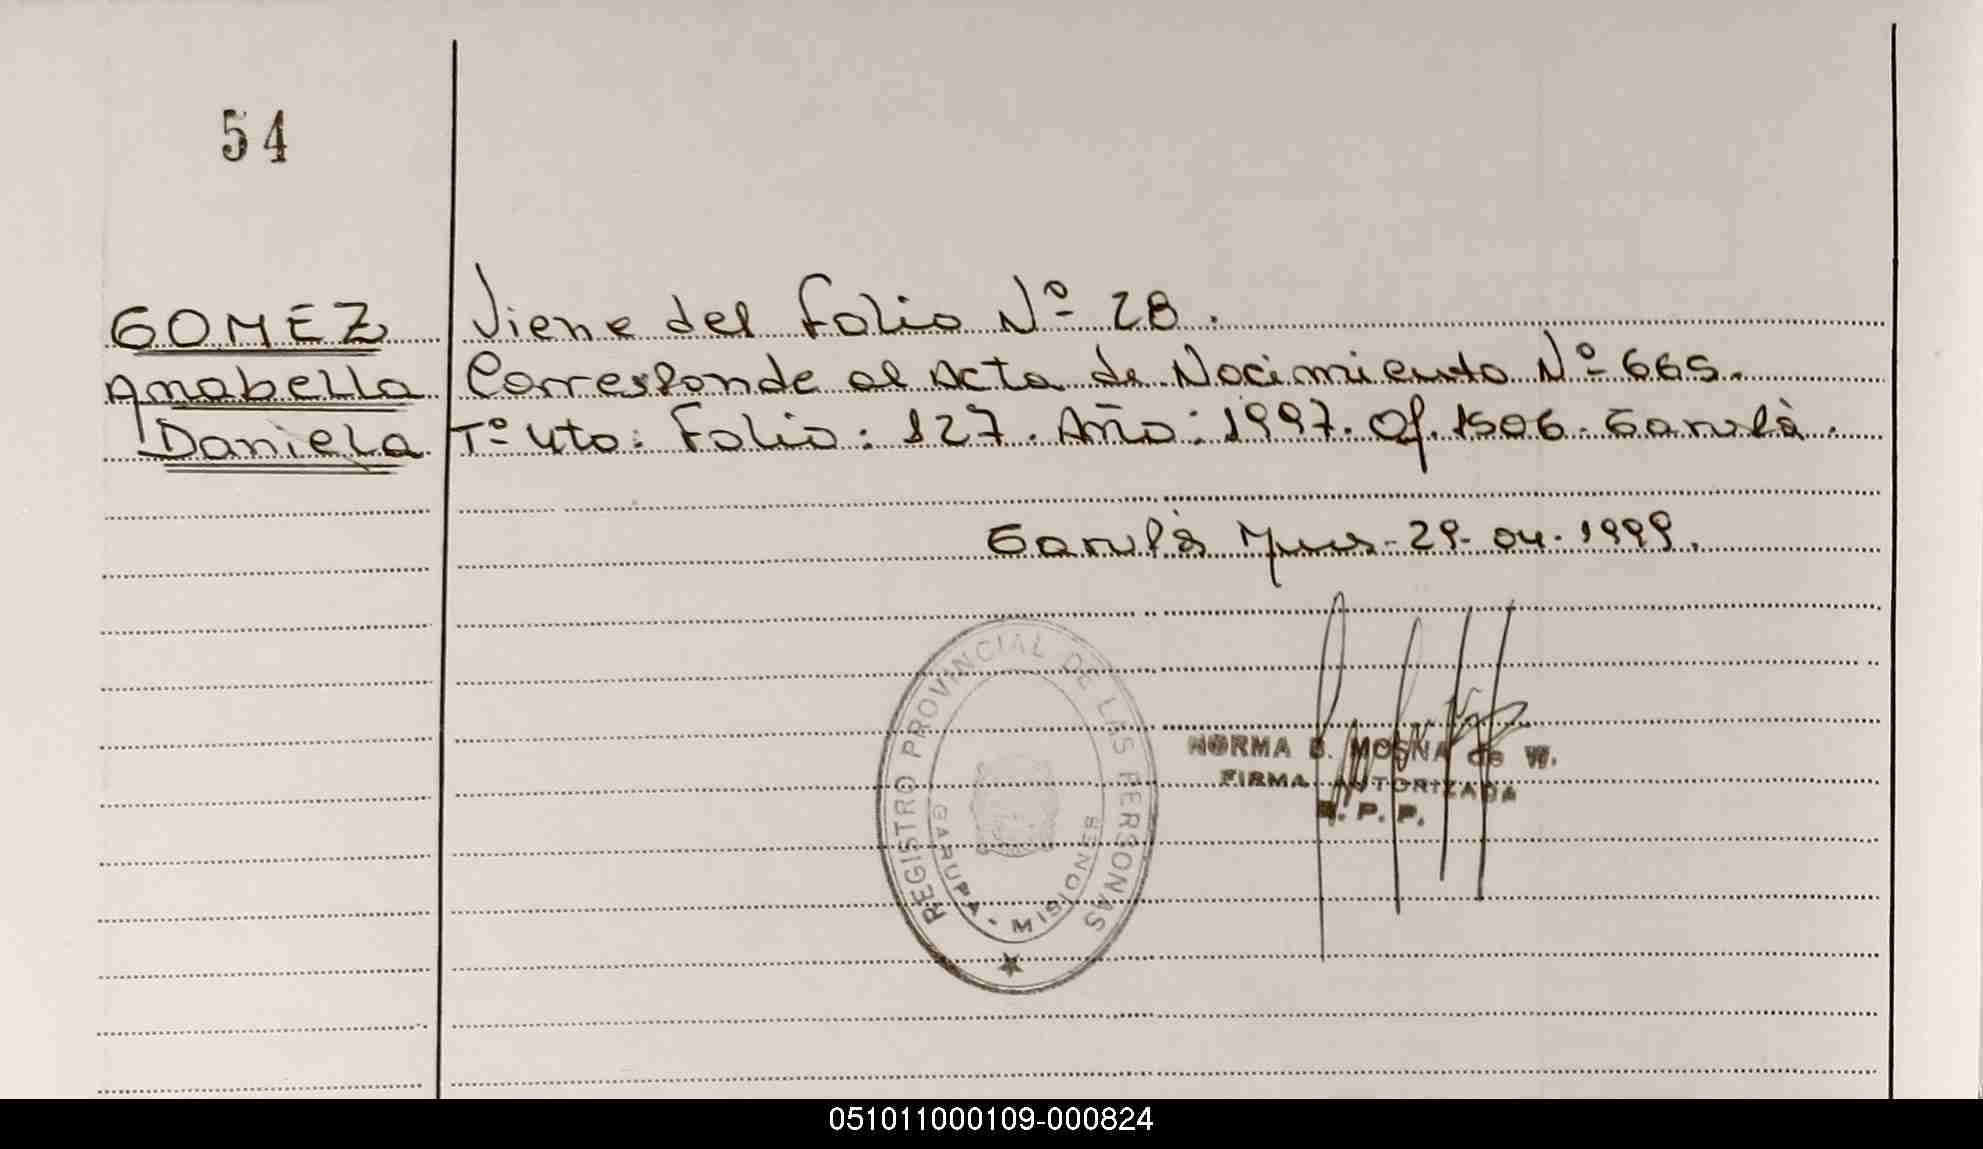 54
GOMEZ
Anabella
Daniela
Viene del Folio Nº 28.
Corresponde al Acta de Nacimiento Nº 665.
Tº 4to: Folio: 127. Año: 1997. Of. 1506. Garupà.
Garupà Mnes. 29-04-1999.
REGISTRO PROVINCIAL DE LAS PERSONAS
GARUPA - MISIONES
NORMA B. MOSNA de W.
FIRMA AUTORIZADA
R. P. P.
051011000109-000824